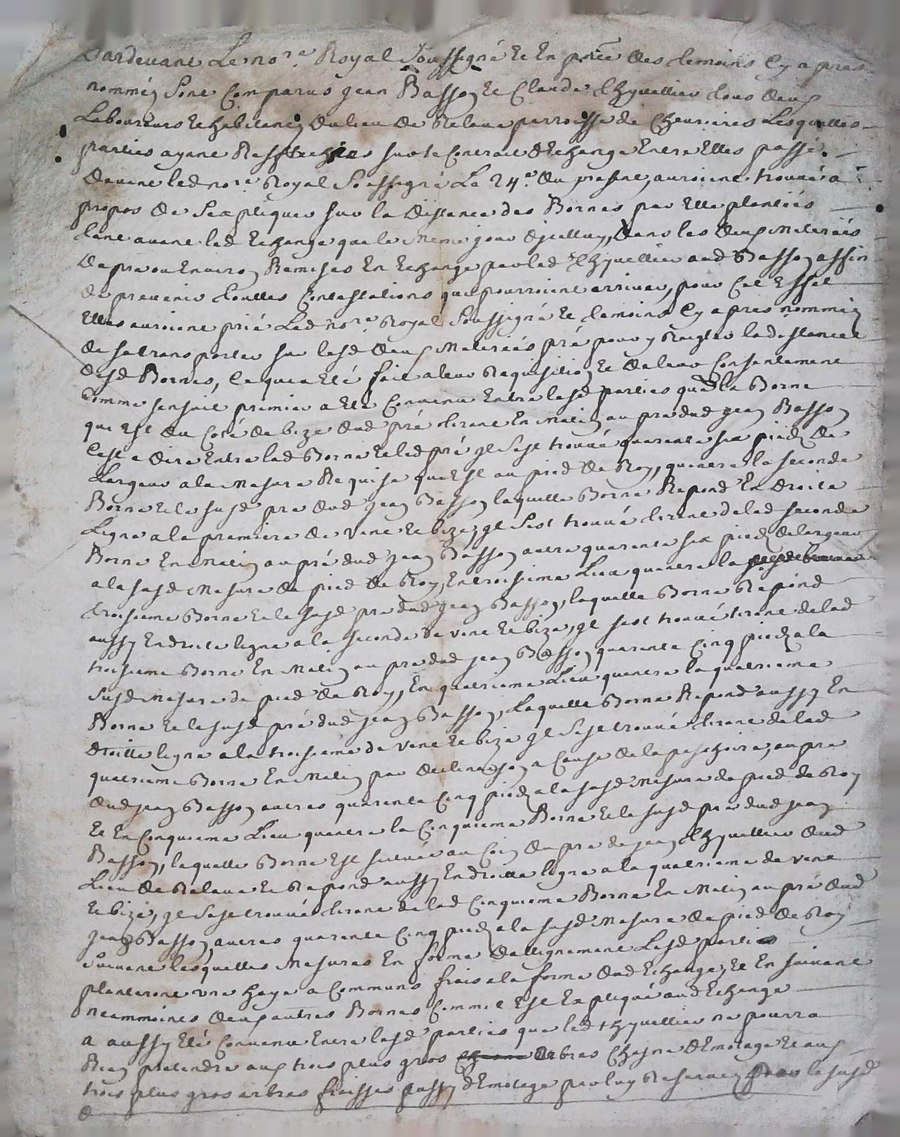 Pardevant Le no.re Royal Soussigné Et En pn̄ce des temoins Cy apres
nommés Sont Comparus jean Basson Et Claude Thyvellier tous deux
Laboureurs Et habitants du lieu de Relave parroisse de Chevrieres Lesquelles
parties ayant sur le Contrat d'Echange Entre Elles passé
devant led no.re Royal Soussigné Le 24.e du present, auroint trouvé a
propos de S'expliquer sur la distance des Bornes par Elle plantées
tant avant led Echange que le Meme jour dycelluy, dans les deux Materiés
de pré ou Environ Remises En Echange par led Thyvellier aud Basson affin
de prevenir touttes Contestations qui pourroint arriver, pour Cet Effet
Elles auroint prié Led no.re Royal Soussigné Et temoins Cy apres nommés
de se transporter sur lesd deux Materiés pré pour y Regler la distance
desd Bornes, Ce qui a Eté fait a leur Requisition Et de leur Consentement
Comme s'ensuit premier a Eté Convenu Entre lesd parties que la Borne
qui Est du Coté de bize dud pré tirant En Matin au pré dud jean Basson
C'est a dire Entre lad Borne Et led pré il s'est trouvé quarante six pieds de
Largeur a la Mesure Requise qui Est au pied de Roy, quant a la seconde
Borne Et le susd pré dud jean Basson laquelle Borne Repond En droite
Ligne a la premiere de vent Et bize, il s'est trouvé tirant de lad seconde
Borne En Matin au pré dud jean Basson autre quarante six pieds de largeur
a la susd Mesure de pied de Roy, En troisime Lieu quant a la
troisieme Borne Et le susd pré dud jean Basson, laquelle Borne Repond
aussy En droite ligne a la seconde de vent Et bize, il s'est trouvé tirant de lad
troisieme Borne En Matin au pré dud jean Basson quarante Cinq pieds a la
susd Mesure de pied de Roy, En quatrieme Lieu quant a la quatrieme
Borne Et le susd pré dud jean Basson, Laquelle Borne Repond aussy En
droitte ligne a la troisieme de vent Et bize il s'est trouvé tirant de lad
quatrieme Borne En Matin par declinaison a Cause de la , au pré
dud jean Basson autres quarante Cinq pieds a la susd Mesure de pied de Roy
Et En Cinquieme Lieu quant a la Cinquieme Borne Et le susd pré dud jean
Basson, laquelle Borne Est située au Coin du pré de jean Thyvellier dud
Lieu de Relave Et Repond aussy En droitte ligne a la quatrieme de vent
Et bize, il s'est trouvé tirant de lad Cinquieme Borne En Matin au pré dud
jean Basson autres quarante Cinq pieds a la susd Mesure de pied de Roy
Suivant lesquelles Mesures En forme d'allignement Lesd parties
planteront une haye a Communs frais a la forme dud Echange, Et En suivant
neammoins deux autres Bornes Comme Est Expliqué aud Echange
a aussy Eté Convenu Entre lesd parties que led Thyvellier ne pourra
Rien pretendre aux trois plus gros arbres Chesne d'Emotage Et aux
trois plus gros arbres fraisses aussy d'Emotage par luy Reservés lesusd